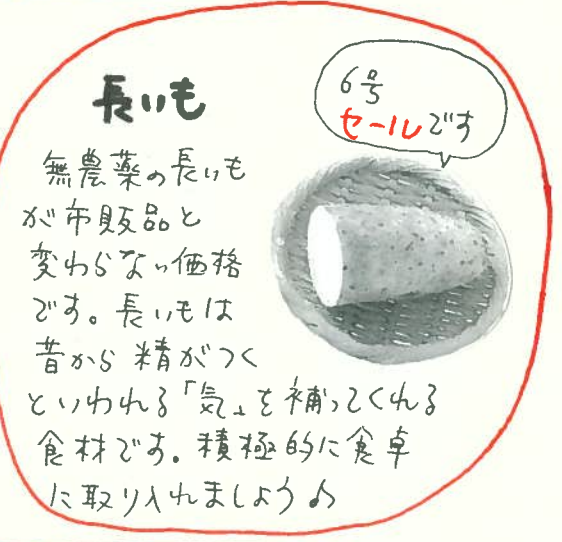 長いも
6号
セールです
無農薬の長いも
が市販品と
変わらない価格
です。長いもは
昔から精がつく
といわれる「気」を補ってくれる
食材です。積極的に食卓
に取り入れましょう♪